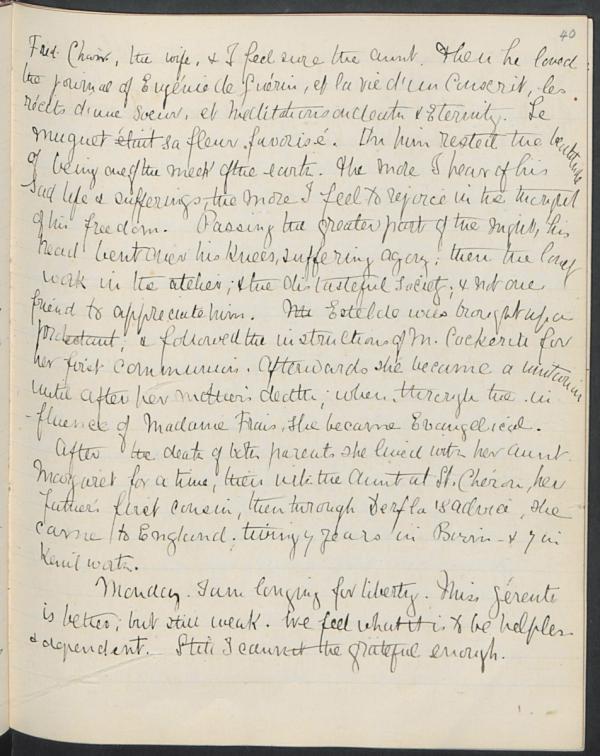 40
Fred. Chavr, the wife, & I feel sure the aunt. Then he loved
the journal of Eugénie de Guérin, et la vie d'un Conscrit, les
récits d'une Soeur, et Meditations on death & Eternity. Le
muguet était sa fleur favorisé. On him rested the beatitude
of being one of the meek of the earth. The more I hear of his
sad life & sufferings, the more I feel to rejoice in the thought
of his freedom. Passing the greater part of the night, his
head bent over his knees, suffering agony; then the long
work in the atelier; & the distasteful Society; & not one
friend to appreciate him. Estelde was brought up a
protestant; & followed the instructions of M. Cockerill for
her first communion. Afterwards she became a unitarian
until after her mother's death; when, through the in
-fluence of Madame Frais, she became Evangelical.
After the death of both parents she lived with her aunt
Margaret for a time, then with the Aunt at St. Chéron, her
father's first cousin, then through Derfla's advice, she
came to England; living 7 years in & 7 in
Kenilworth.
Monday. I am longing for liberty. Miss Gérente
is better; but still weak. We feel what it is to be helpless
& dependent. Still I cannot be grateful enough.